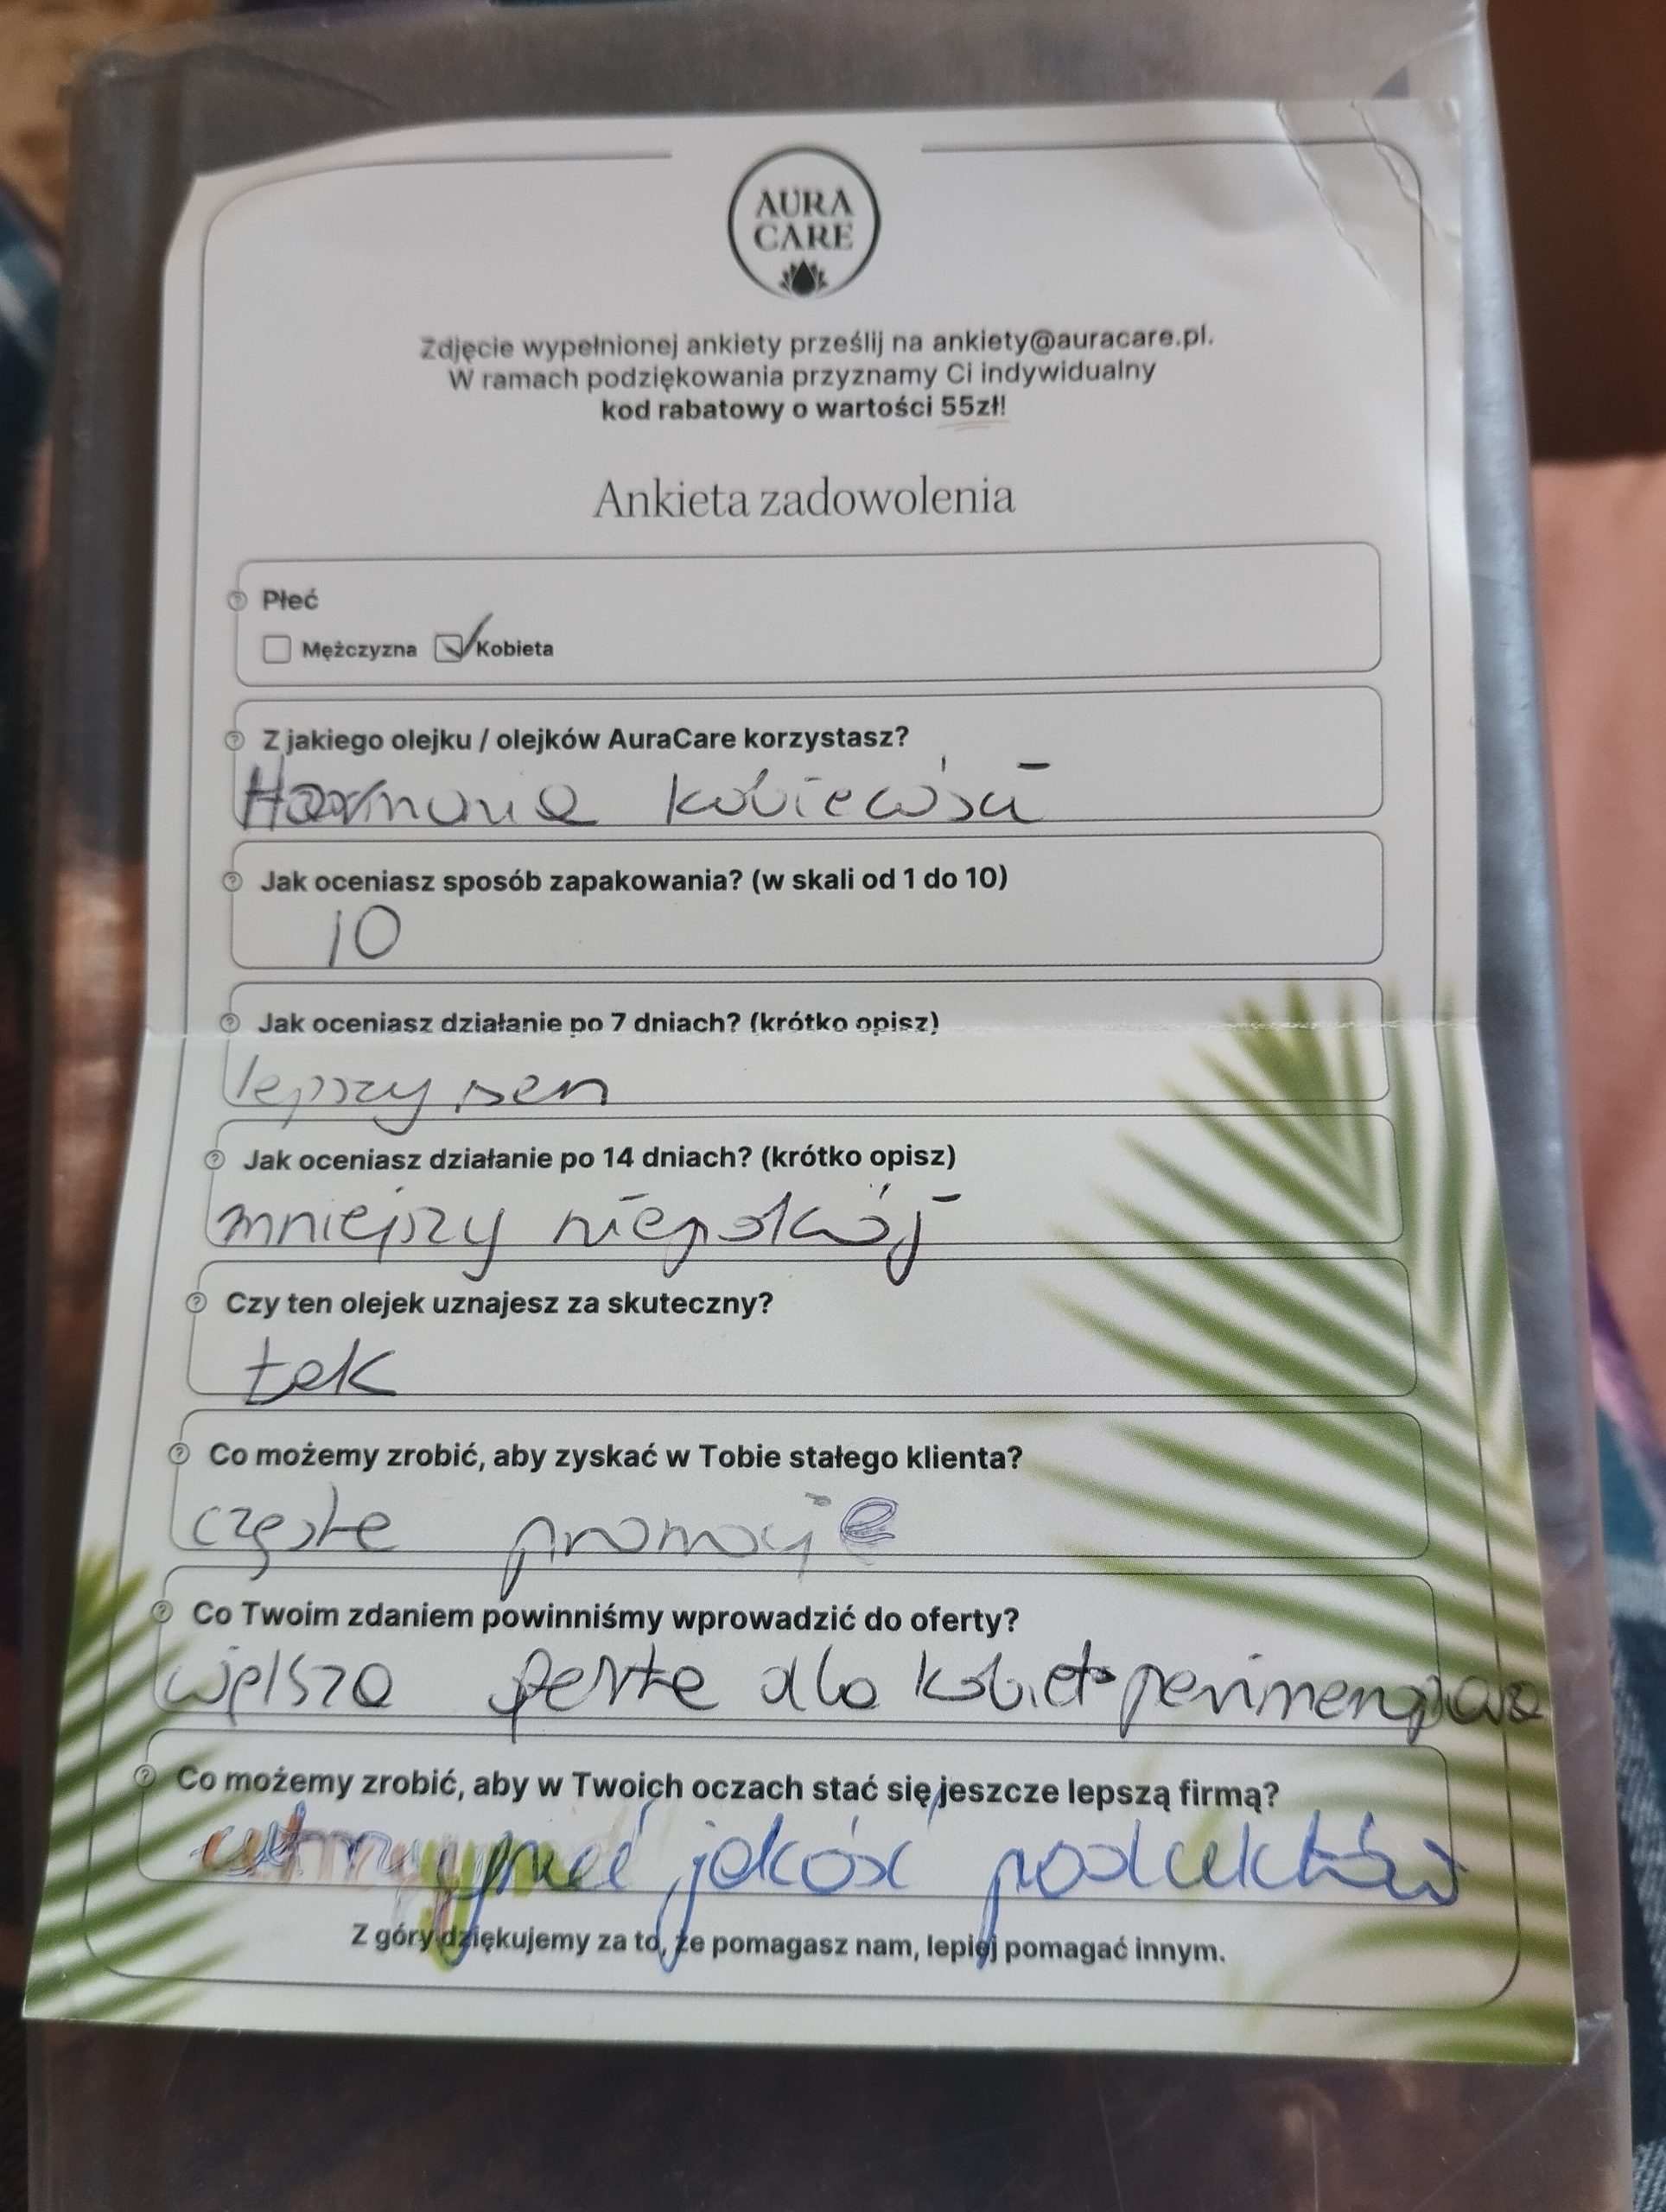 AURA
CARE
Zdjęcie wypełnionej ankiety prześlij na ankiety@auracare.pl.
W ramach podziękowania przyznamy Ci indywidualny
kod rabatowy o wartości 55zł!
Ankieta zadowolenia
Płeć
Mężczyzna Kobieta
Z jakiego olejku / olejków AuraCare korzystasz?
Harmonia kobiecości
Jak oceniasz sposób zapakowania? (w skali od 1 do 10)
10
Jak oceniasz działanie po 7 dniach? (krótko opisz)
lepszy sen
Jak oceniasz działanie po 14 dniach? (krótko opisz)
mniejszy niepokój
Czy ten olejek uznajesz za skuteczny?
tak
Co możemy zrobić, aby zyskać w Tobie stałego klienta?
częste promocje
Co Twoim zdaniem powinniśmy wprowadzić do oferty?
dla kobiet
Co możemy zrobić, aby w Twoich oczach stać się jeszcze lepszą firmą?
utrzymać jakość produktów
Z góry dziękujemy za to, że pomagasz nam, lepiej pomagać innym.